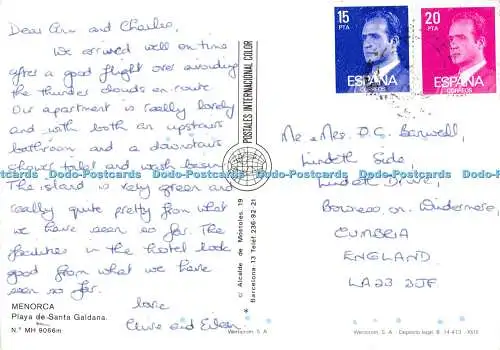 Dear Ann and Charles,
We arrived well on time
after a good flight over avoiding
the thunder clouds en-route.
Our apartment is really lovely
and with both an upstairs
bathroom and a downstairs
shower toilet and wash basin.
The island is very green and
really quite pretty from what
we have seen so far. The
facilities in the hotel look
good from what we have
seen so far.
love
Clive and
MENORCA
Playa de Santa Galdana.
N.º MH 9066m
POSTALES INTERNACIONAL COLOR
c/ Alcalde de Móstoles, 19
Barcelona-13 Teléf. 236-92-21
15
PTA
ESPAÑA
CORREOS
20
PTA
ESPAÑA
CORREOS
Mr & Mrs. D.G. Barwell,
Lindeth Side,
Lindeth Drive,
Bowness on Windermere,
CUMBRIA
ENGLAND
LA23 2JF
Dodo-Postcards Dodo-Postcards Dodo-Postcards Dodo-Postcards
S. A.
S. A. - Depósito legal B.